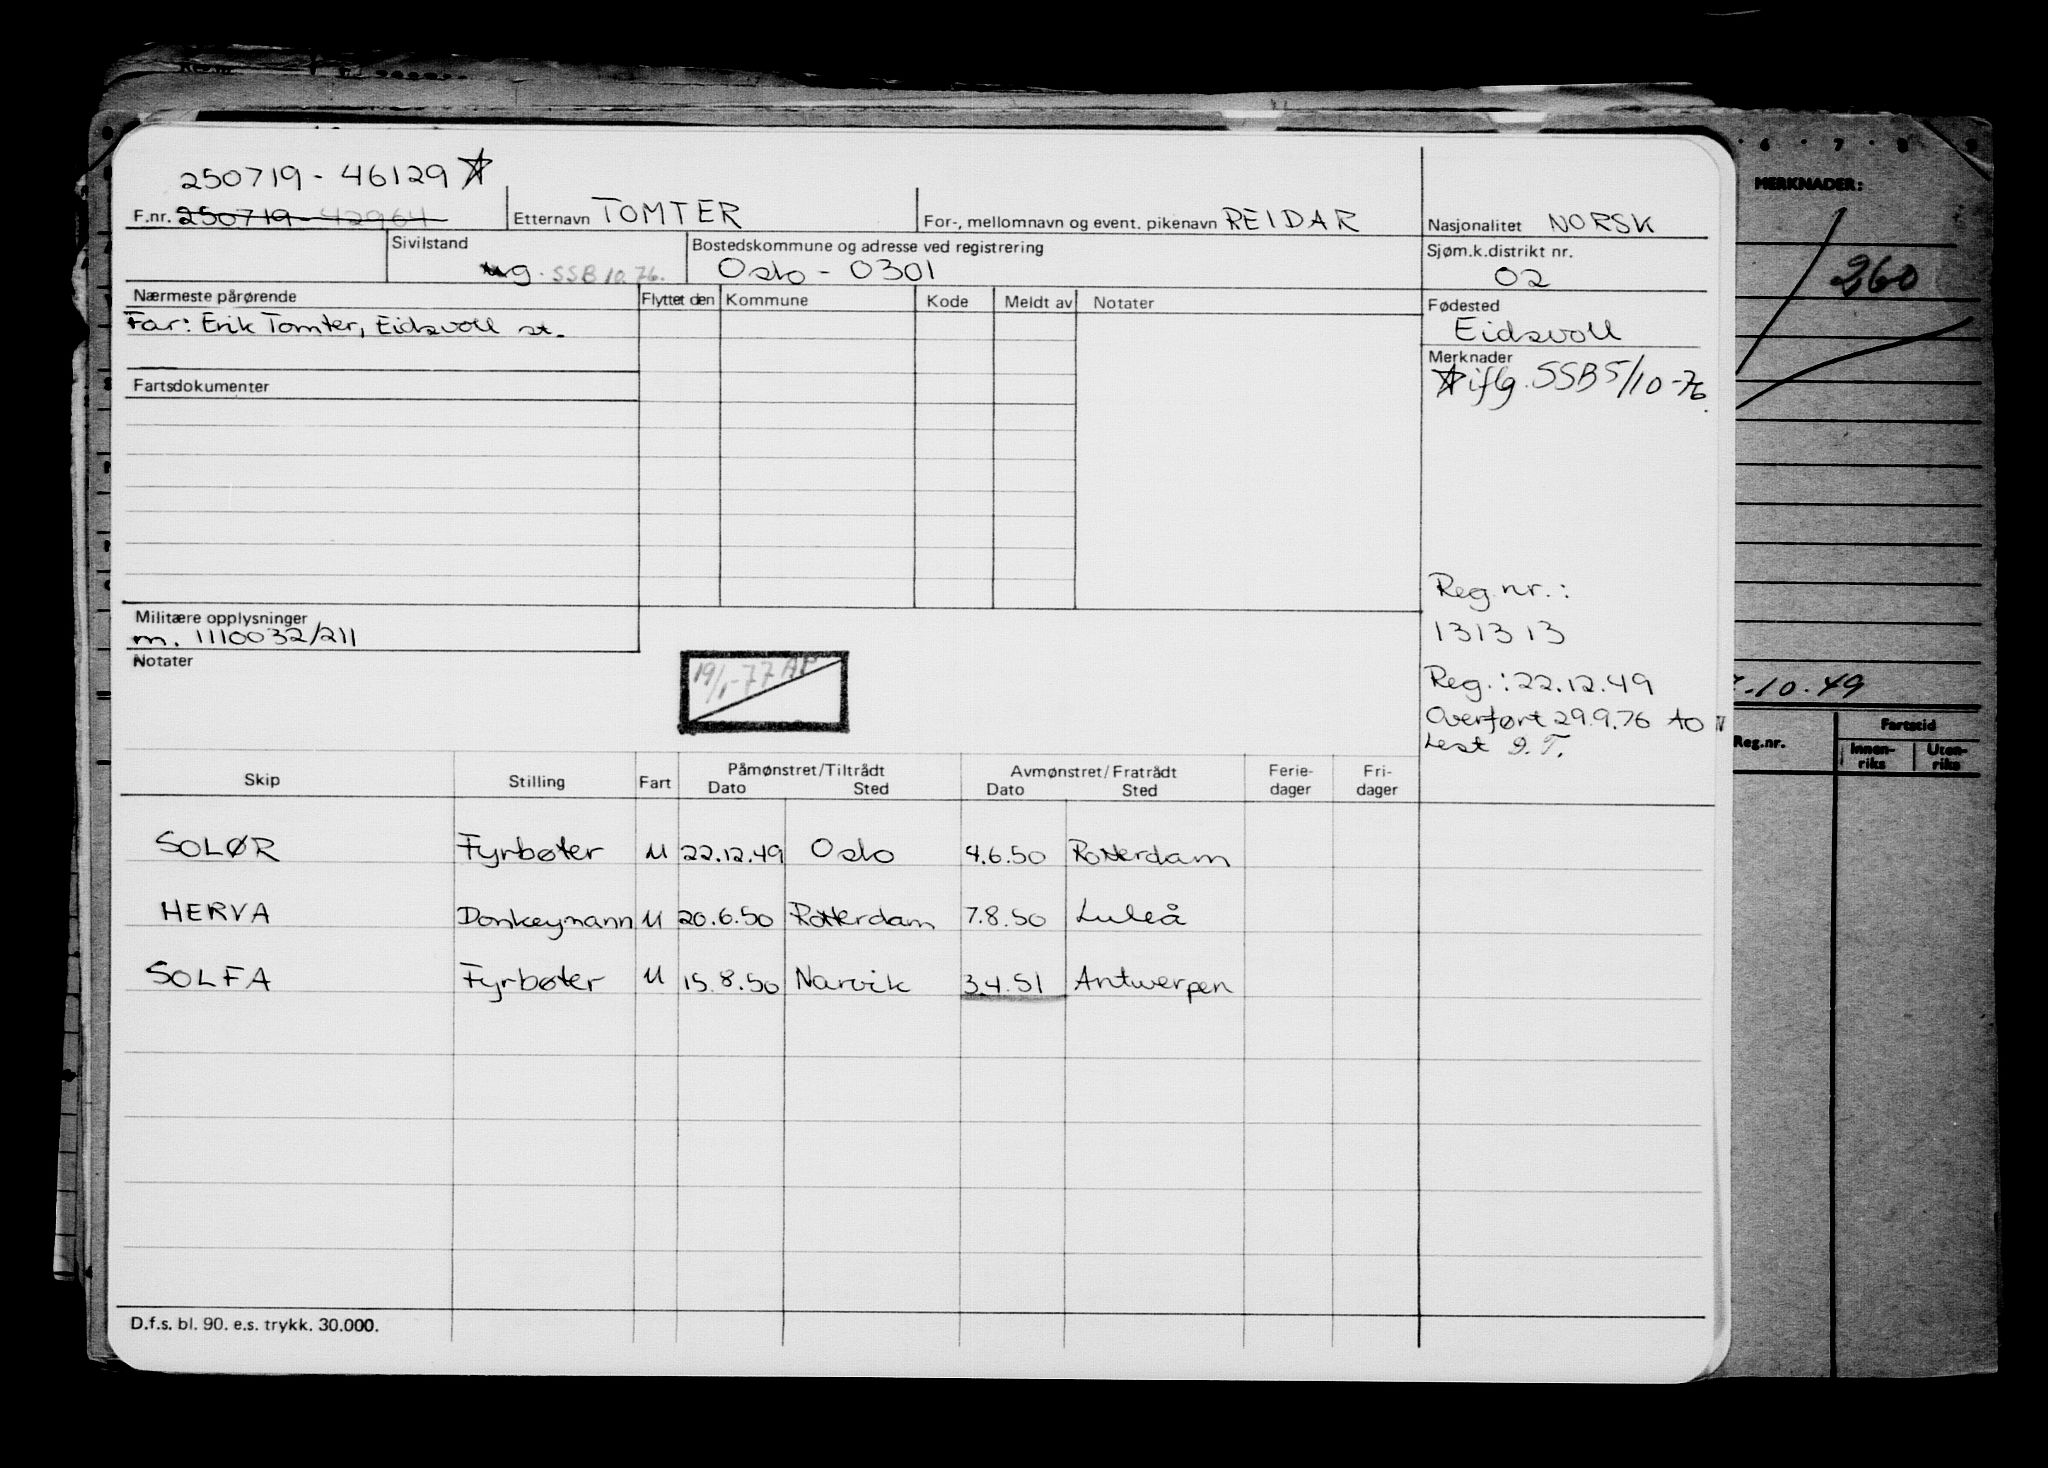 250719 - 46129 ☆
F.nr. 250719 - 42964
Etternavn TOMTER
For-, mellomnavn og event. pikenavn REIDAR
Nasjonalitet NORSK
Sivilstand
g. SSB 10.76.
Bostedskommune og adresse ved registrering
Oslo - 0301
Sjøm.k.distrikt nr.
02
Nærmeste pårørende
Far: Erik Tomter, Eidsvoll st.
Flyttet den Kommune Kode Meldt av Notater
Fødested
Eidsvoll
Merknader
☆ iflg. SSB 5/10-76.
Fartsdokumenter
Reg.nr.:
131313
Reg.: 22.12.49
Overført 29.9.76 AO
Lest I.T.
Militære opplysninger
m. 1110032/211
Notater
19/1-77 AP
Skip Stilling Fart Påmønstret/Tiltrådt Avmønstret/Fratrådt Ferie- Fri-
Dato Sted Dato Sted dager dager
SOLØR Fyrbøter U 22.12.49 Oslo 4.6.50 Rotterdam
HERVA Donkeymann U 20.6.50 Rotterdam 7.8.50 Luleå
SOLFA Fyrbøter U 15.8.50 Narvik 3.4.51 Antwerpen
D.f.s. bl. 90. e.s. trykk. 30.000.
6 · 7 · 8 · 9
MERKNADER:
260
.10.49
Reg.nr.
Fartstid
Innen-
riks
Uten-
riks